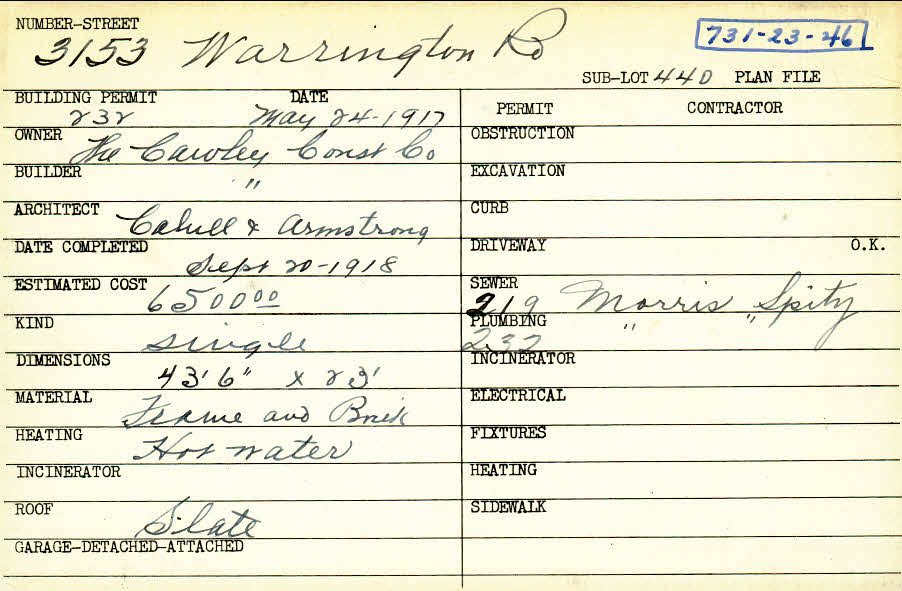 NUMBER-STREET
3153 Warrington Rd
731-23-46
SUB-LOT 440 PLAN FILE
BUILDING PERMIT DATE
232 May 24-1917
OWNER The Cawley Const Co
BUILDER "
ARCHITECT Cahill & Armstrong
DATE COMPLETED Sept 20-1918
ESTIMATED COST 650000
KIND single
DIMENSIONS 43'6" x 23'
MATERIAL Frame and Brick
HEATING Hot water
INCINERATOR
ROOF Slate
GARAGE-DETACHED-ATTACHED
PERMIT CONTRACTOR
OBSTRUCTION
EXCAVATION
CURB
DRIVEWAY O.K.
SEWER
219 Morris Spitz
PLUMBING " "
232
INCINERATOR
ELECTRICAL
FIXTURES
HEATING
SIDEWALK